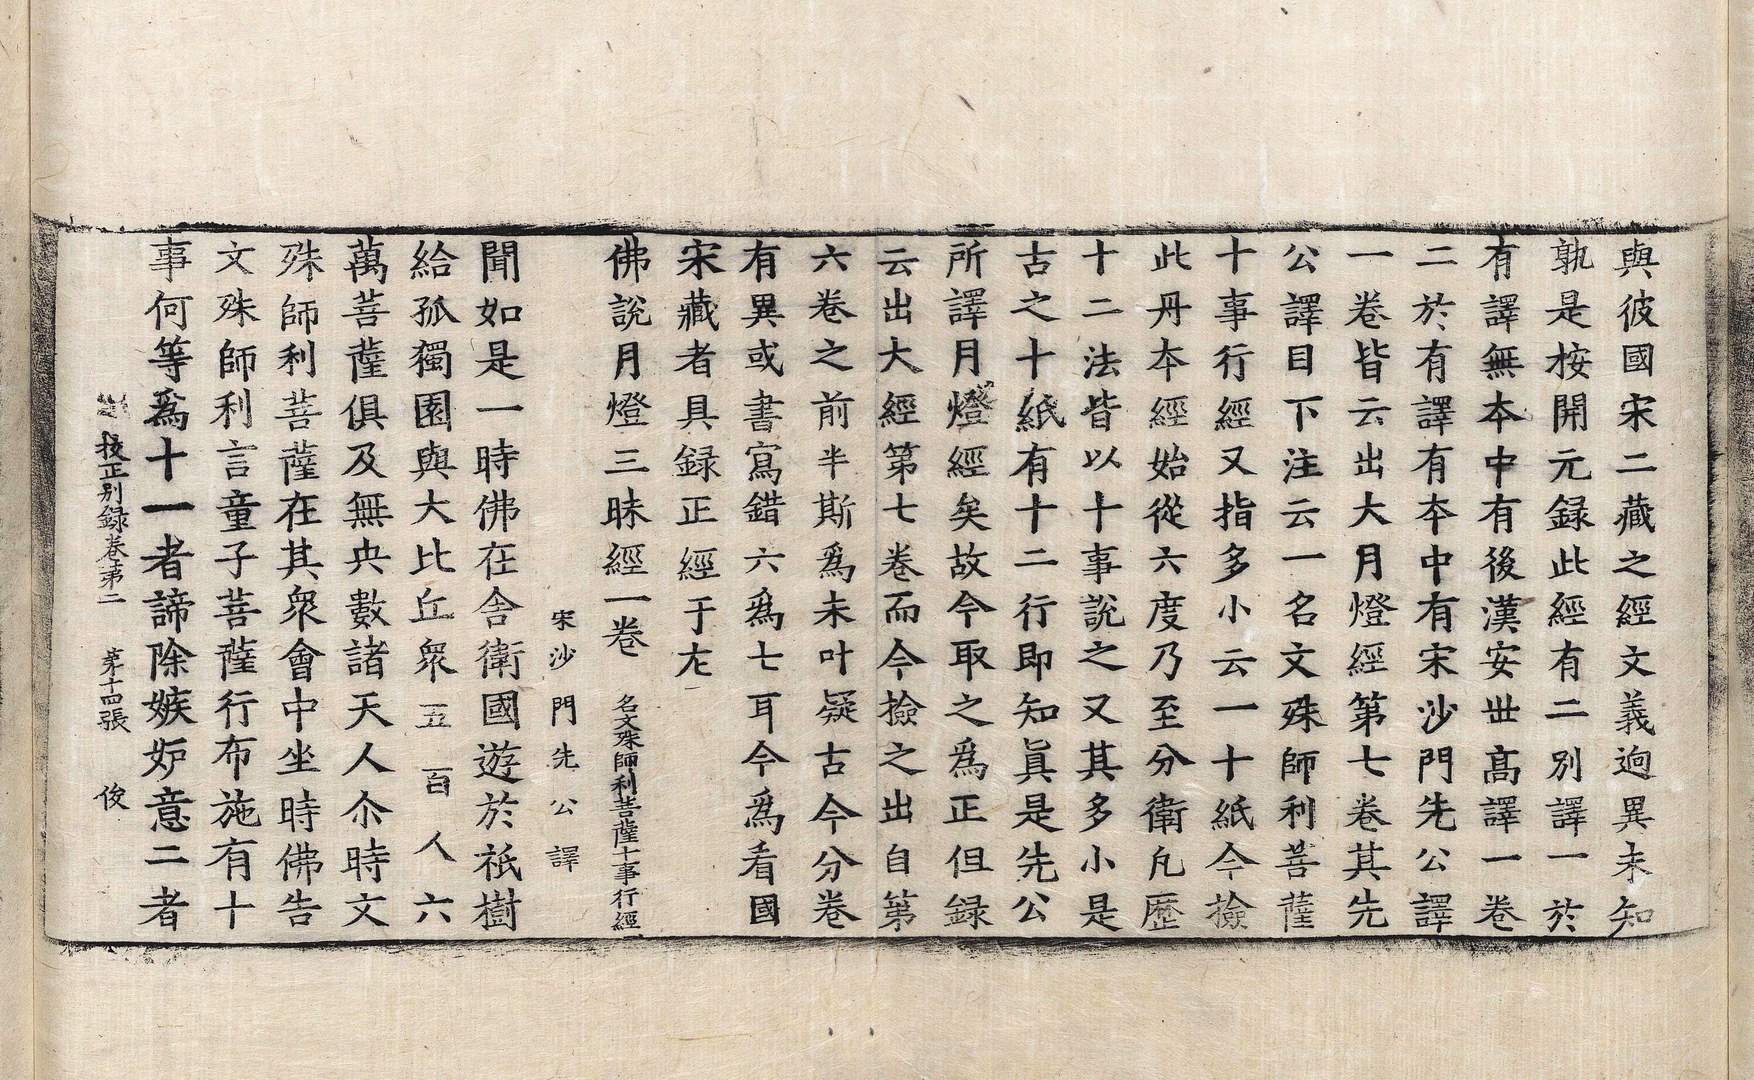 與彼國宋二藏之經文義逈異未知
孰是桉開元録此經有二別譯一於
有譯無本中有後漢安世髙譯一卷
二於有譯有本中有宋沙門先公譯
一卷皆云出大月燈經第七卷其先
公譯目下注云一名文殊師利菩薩
十事行經又指多小云一十紙今撿
此丹本經始從六度乃至分衛凡歷
十二法皆以十事說之又其多小是
古之十紙有十二行即知眞是先公
所譯月燈經矣故今取之爲正但録
云出大經第七卷而今撿之出自第
六卷之前半斯爲未叶疑古今分卷
有異或書寫錯六爲七耳今爲看國
宋藏者具録正經于左
佛說月燈三昧經一卷 名文殊師利菩薩十事行經
宋沙門先公譯
聞如是一時佛在舍衛國遊於祇樹
給孤獨園與大比丘衆五百人六
萬菩薩俱及無央數諸天人尒時文
殊師利菩薩在其衆會中坐時佛告
文殊師利言童子菩薩行布施有十
事何等爲十一者諦除嫉妒意二者
校正別録卷第二 第十四張 俊